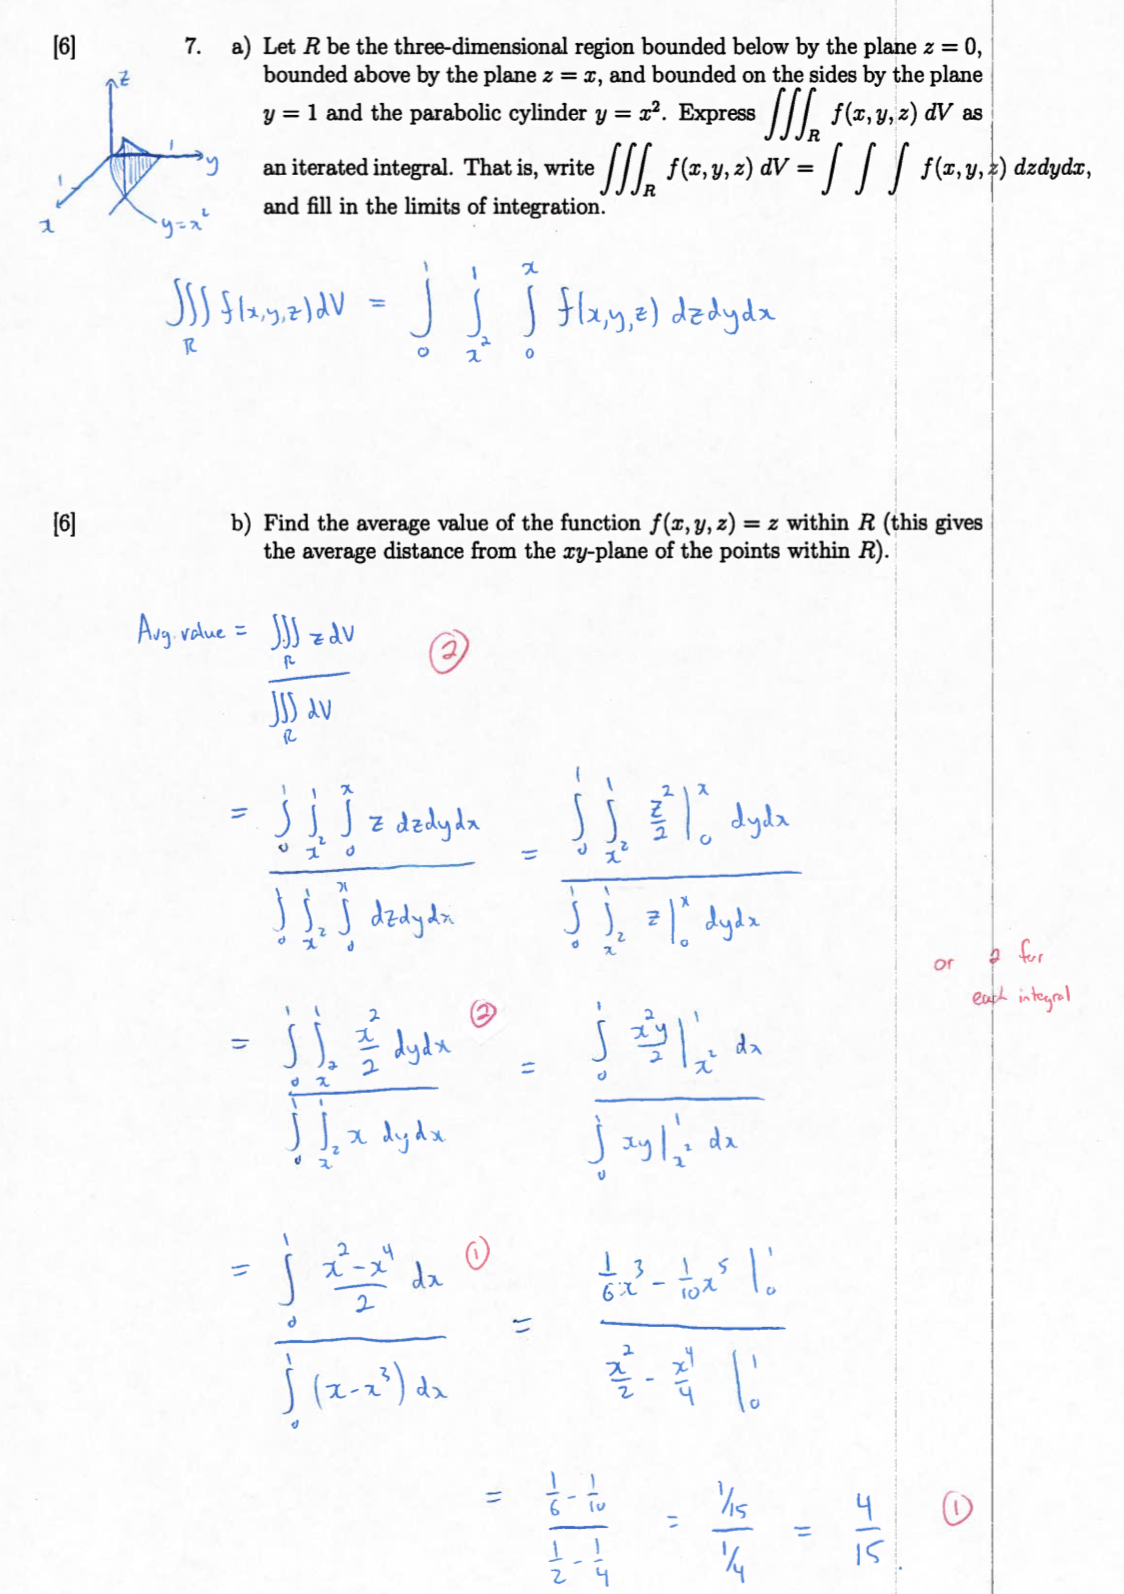 [6] 7. a) Let R be the three-dimensional region bounded below by the plane z = 0,
bounded above by the plane z = x, and bounded on the sides by the plane
y = 1 and the parabolic cylinder y = x². Express ∭_R f(x, y, z) dV as
an iterated integral. That is, write ∭_R f(x, y, z) dV = ∫ ∫ ∫ f(x, y, z) dzdydx,
and fill in the limits of integration.
z
1
y
1
x
y=x²
∭_R f(x,y,z)dV = ∫_0^1 ∫_{x²}^1 ∫_0^x f(x,y,z) dzdydx
[6] b) Find the average value of the function f(x, y, z) = z within R (this gives
the average distance from the xy-plane of the points within R).
Avg. value = (∭_R z dV)/(∭_R dV) ②
= (∫_0^1 ∫_{x²}^1 ∫_0^x z dzdydx)/(∫_0^1 ∫_{x²}^1 ∫_0^x dzdydx) = (∫_0^1 ∫_{x²}^1 z²/2 |_0^x dydx)/(∫_0^1 ∫_{x²}^1 z|_0^x dydx)
or 2 for
each integral
= (∫_0^1 ∫_{x²}^1 x²/2 dydx)/(∫_0^1 ∫_{x²}^1 x dydx) ② = (∫_0^1 x²y/2 |_{x²}^1 dx)/(∫_0^1 xy|_{x²}^1 dx)
= (∫_0^1 (x²-x⁴)/2 dx)/(∫_0^1 (x-x³) dx) ① = (1/6 x³ - 1/10 x⁵ |_0^1)/(x²/2 - x⁴/4 |_0^1)
= (1/6 - 1/10)/(1/2 - 1/4) = (1/15)/(1/4) = 4/15. ①